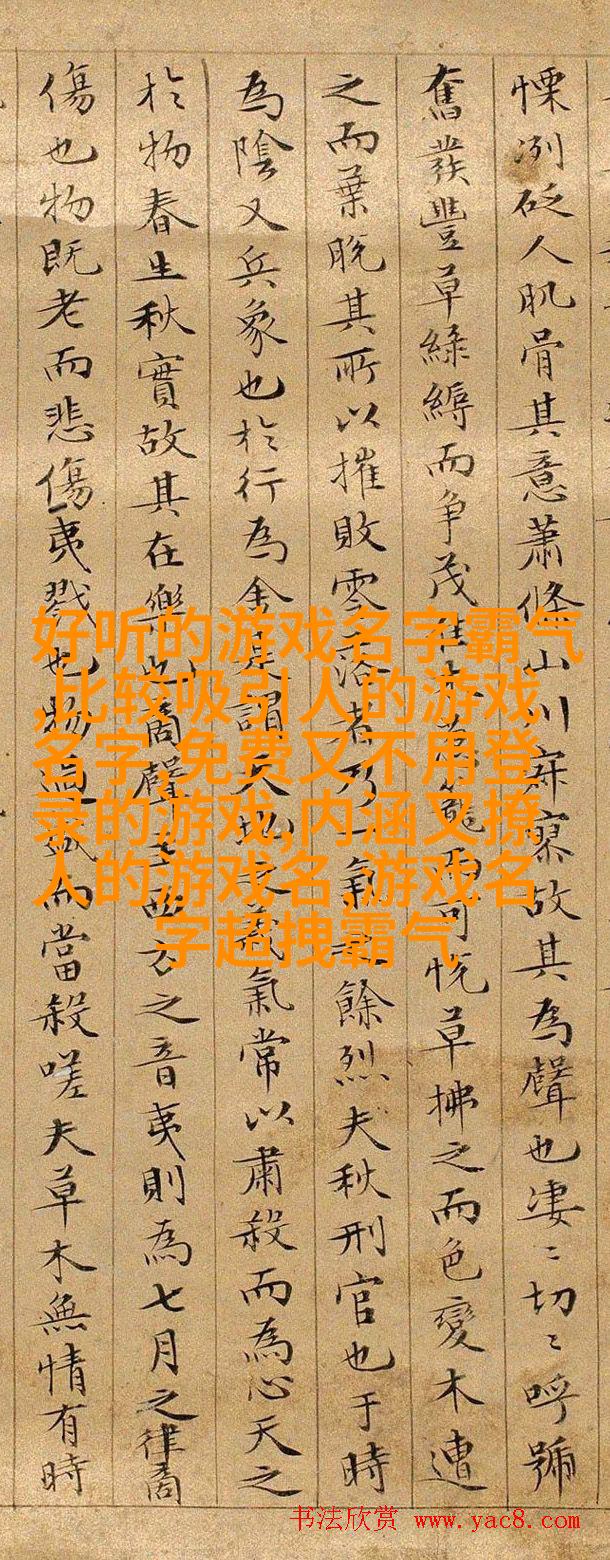 慄冽砭人肌骨其意蕭條山川寂寥故其為聲也凄〻切〻呼號
奮發豐草綠縟而爭茂佳木蔥蘢而可悅草拂之而色變木遭
之而葉脫其所以摧敗零落者乃一氣之餘烈夫秋刑官也于時
為陰又兵象也於行為金是謂天地之義氣常以肅殺而為心天之
於物春生秋實故其在樂也商聲主西方之音夷則為七月之律商
傷也物既老而悲傷夷戮也物過盛而當殺嗟夫草木無情有時
好听的游戏名字霸气
,比较吸引人的游戏
名字,免费又不用登
录的游戏,内涵又撩
人的游戏名,游戏名
字超拽霸气
书法欣赏 www.yac8.com